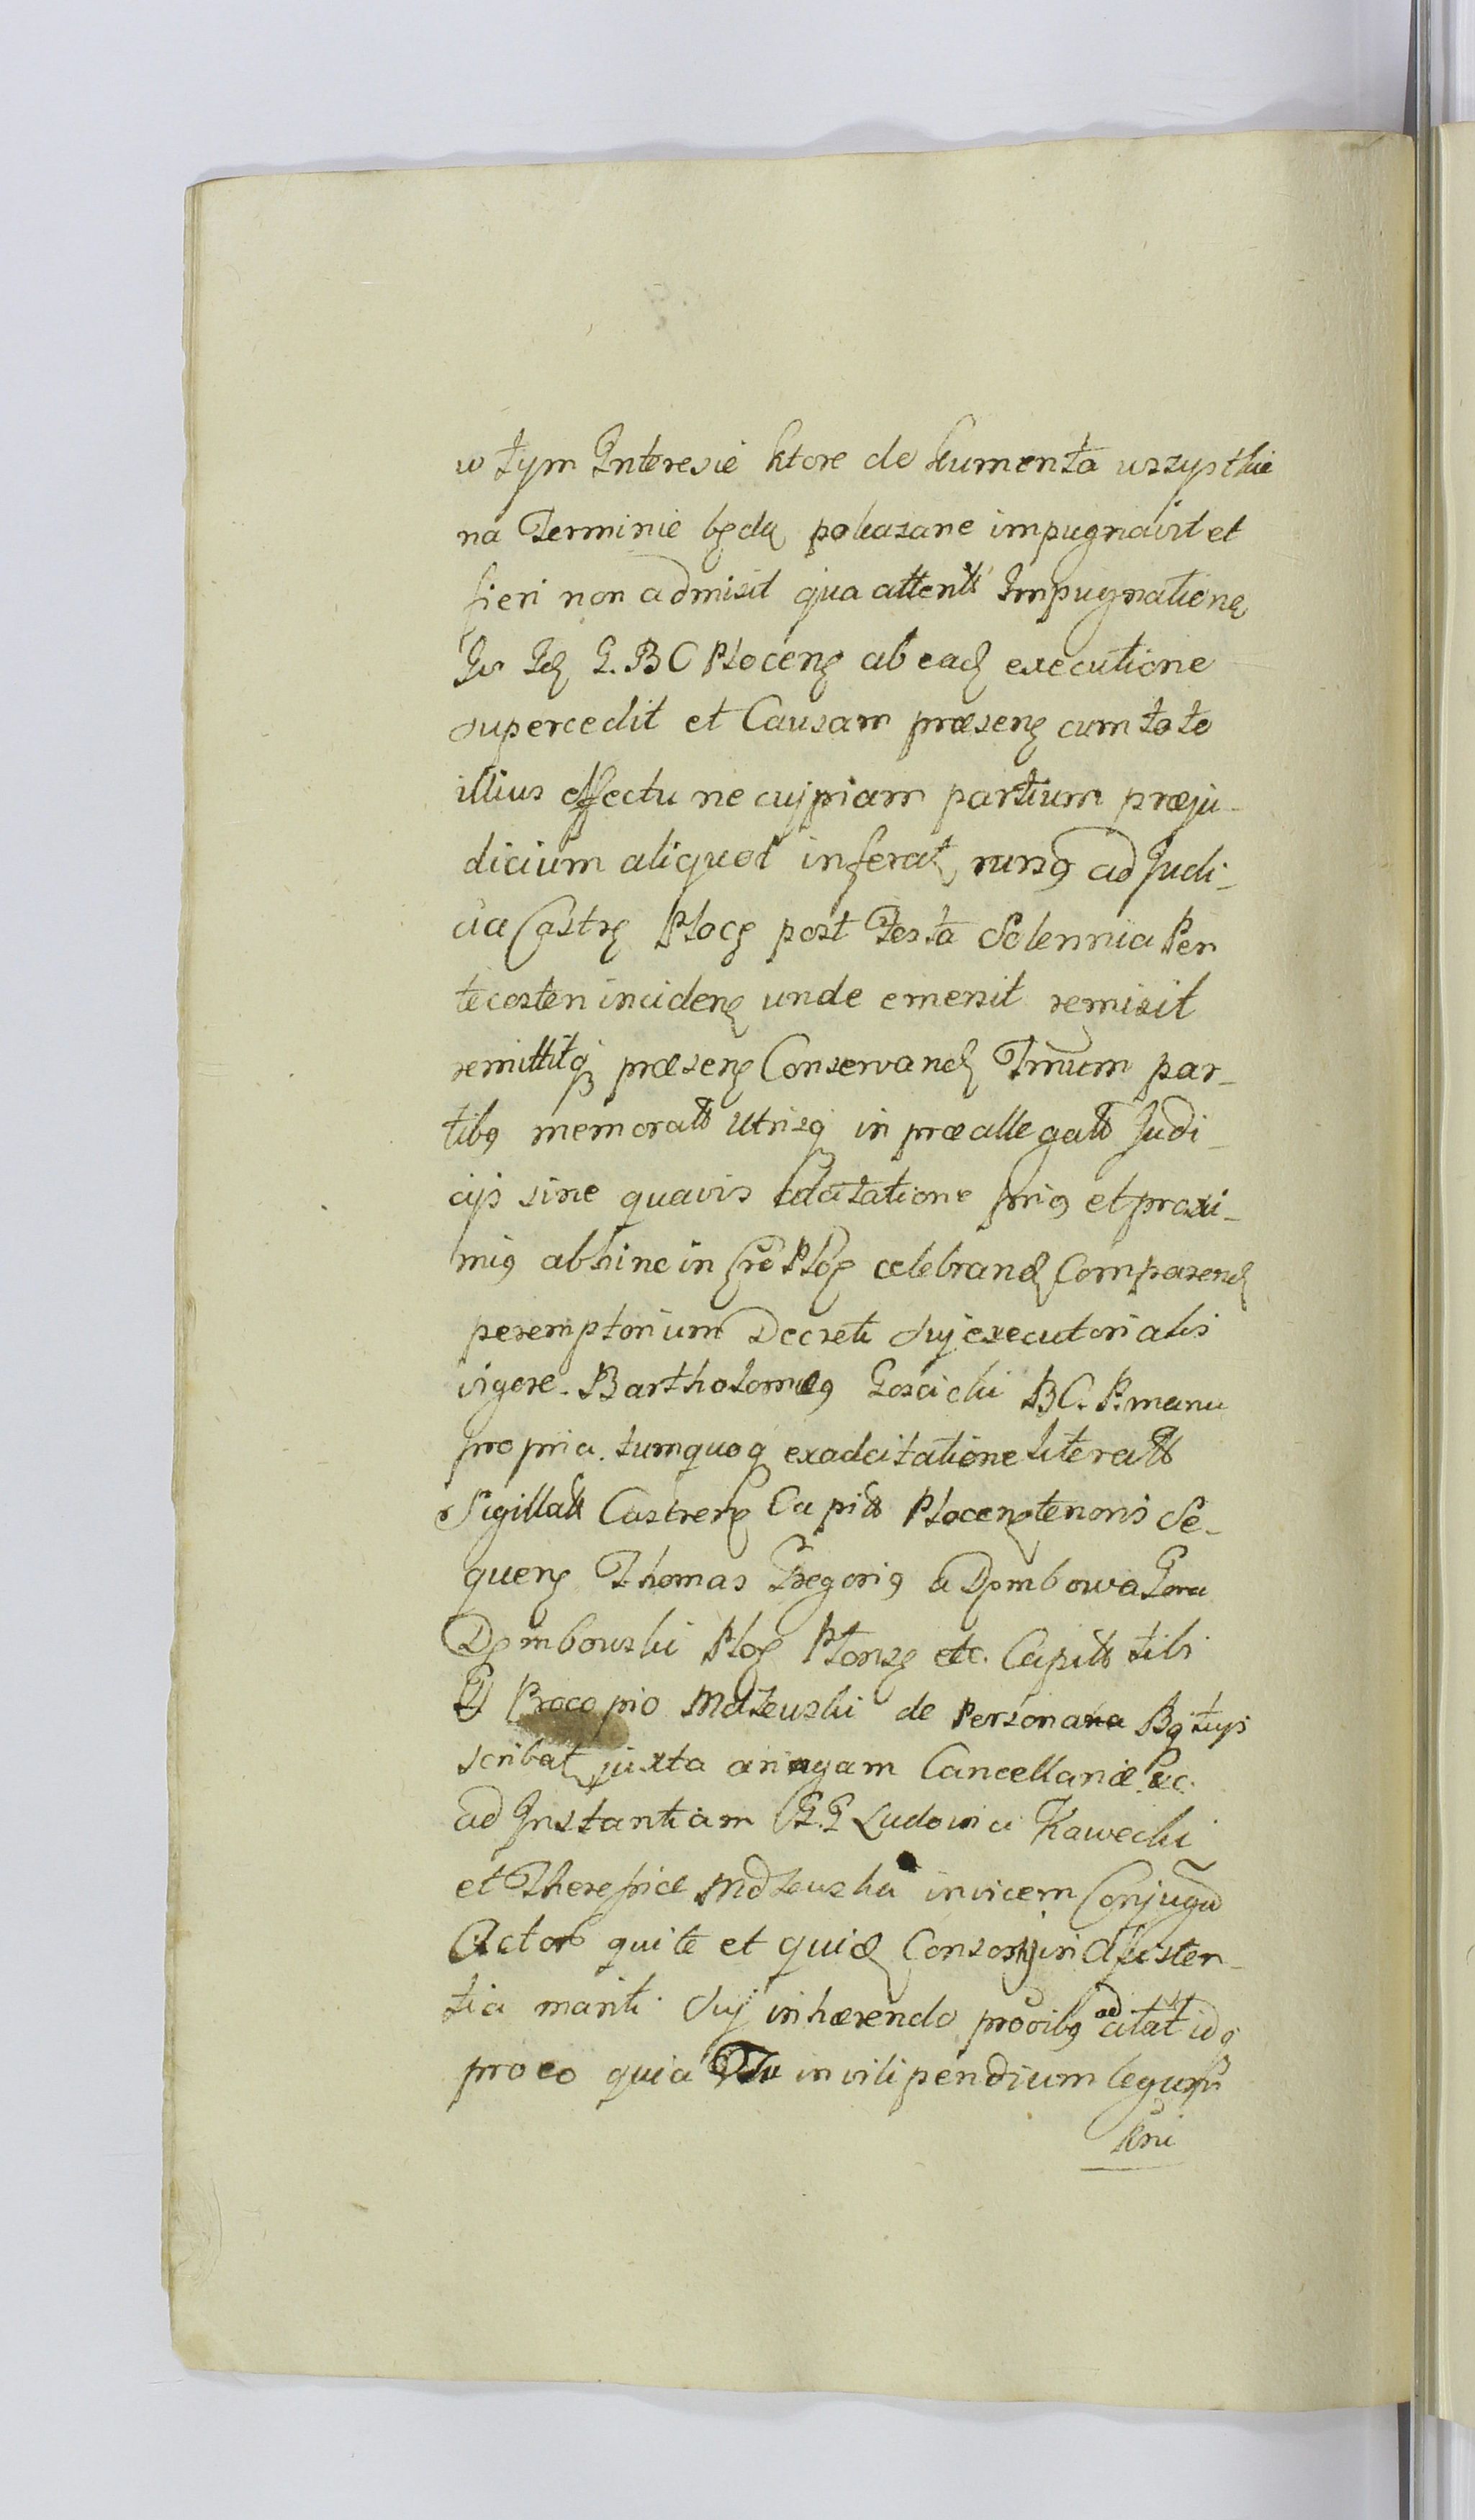 w tym Interesie ktore dokumenta wszystkie
na Terminie będą pokazane impugnavit et
fieri non admisit qua attentt Impugnatione
Gr Id G. BC Płocens ab ead executione
supercedit et Causam præsens cum toto
illius effectu ne cujpiam partium præju-
dicium aliquot inferat rursq ad Judi-
cia Castrs Płocs post Festa Solennia Pen
tecosten incidens unde emersit remisit
remittitq præsens Conservand Tmum par-
tibq memoratt Utrisq in præallegatt Judi-
cijs sine quavis adcitatione priq et proxi-
miq abhinc in Cro Płoc celebrand Comparend
peremptorium Decreti Suj executorialis
vigore. Bartholomeq Goscicki BC. P. manu
propria. tumquoq ex adcitatione literatt
Sigillatt Castrens Capitt Płocens tenoris Se-
quens Thomas Gregoriq a Dombowa Gora
Dombowski Płoc Płons etc. Capitt tibi
G Procopio Mdzewski de Persona Bq tuys
scribat juxta aringam Cancellariæ &c.
ad Instantiam G.G Ludovici Kawecki
et Theressiæ Mdzewska invicem Conjugu
Actor qui te et quid Consortij in Assisten-
tia mariti Suj inhærendo prioribq adcitatt idq
pro eo quia Tu in vilipendium legum
Rni